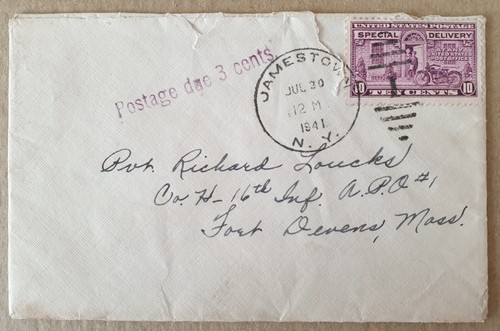 UNITED STATES POSTAGE
SPECIAL DELIVERY
AT ANY
UNITED STATES
POST OFFICE
10 TEN CENTS 10
Postage due 3 cents
JAMESTOWN
JUL 30
12 M
1941
N. Y.
Pvt. Richard Loucks
Co. H-16th Inf. A.P.O #1
Fort Devens, Mass.